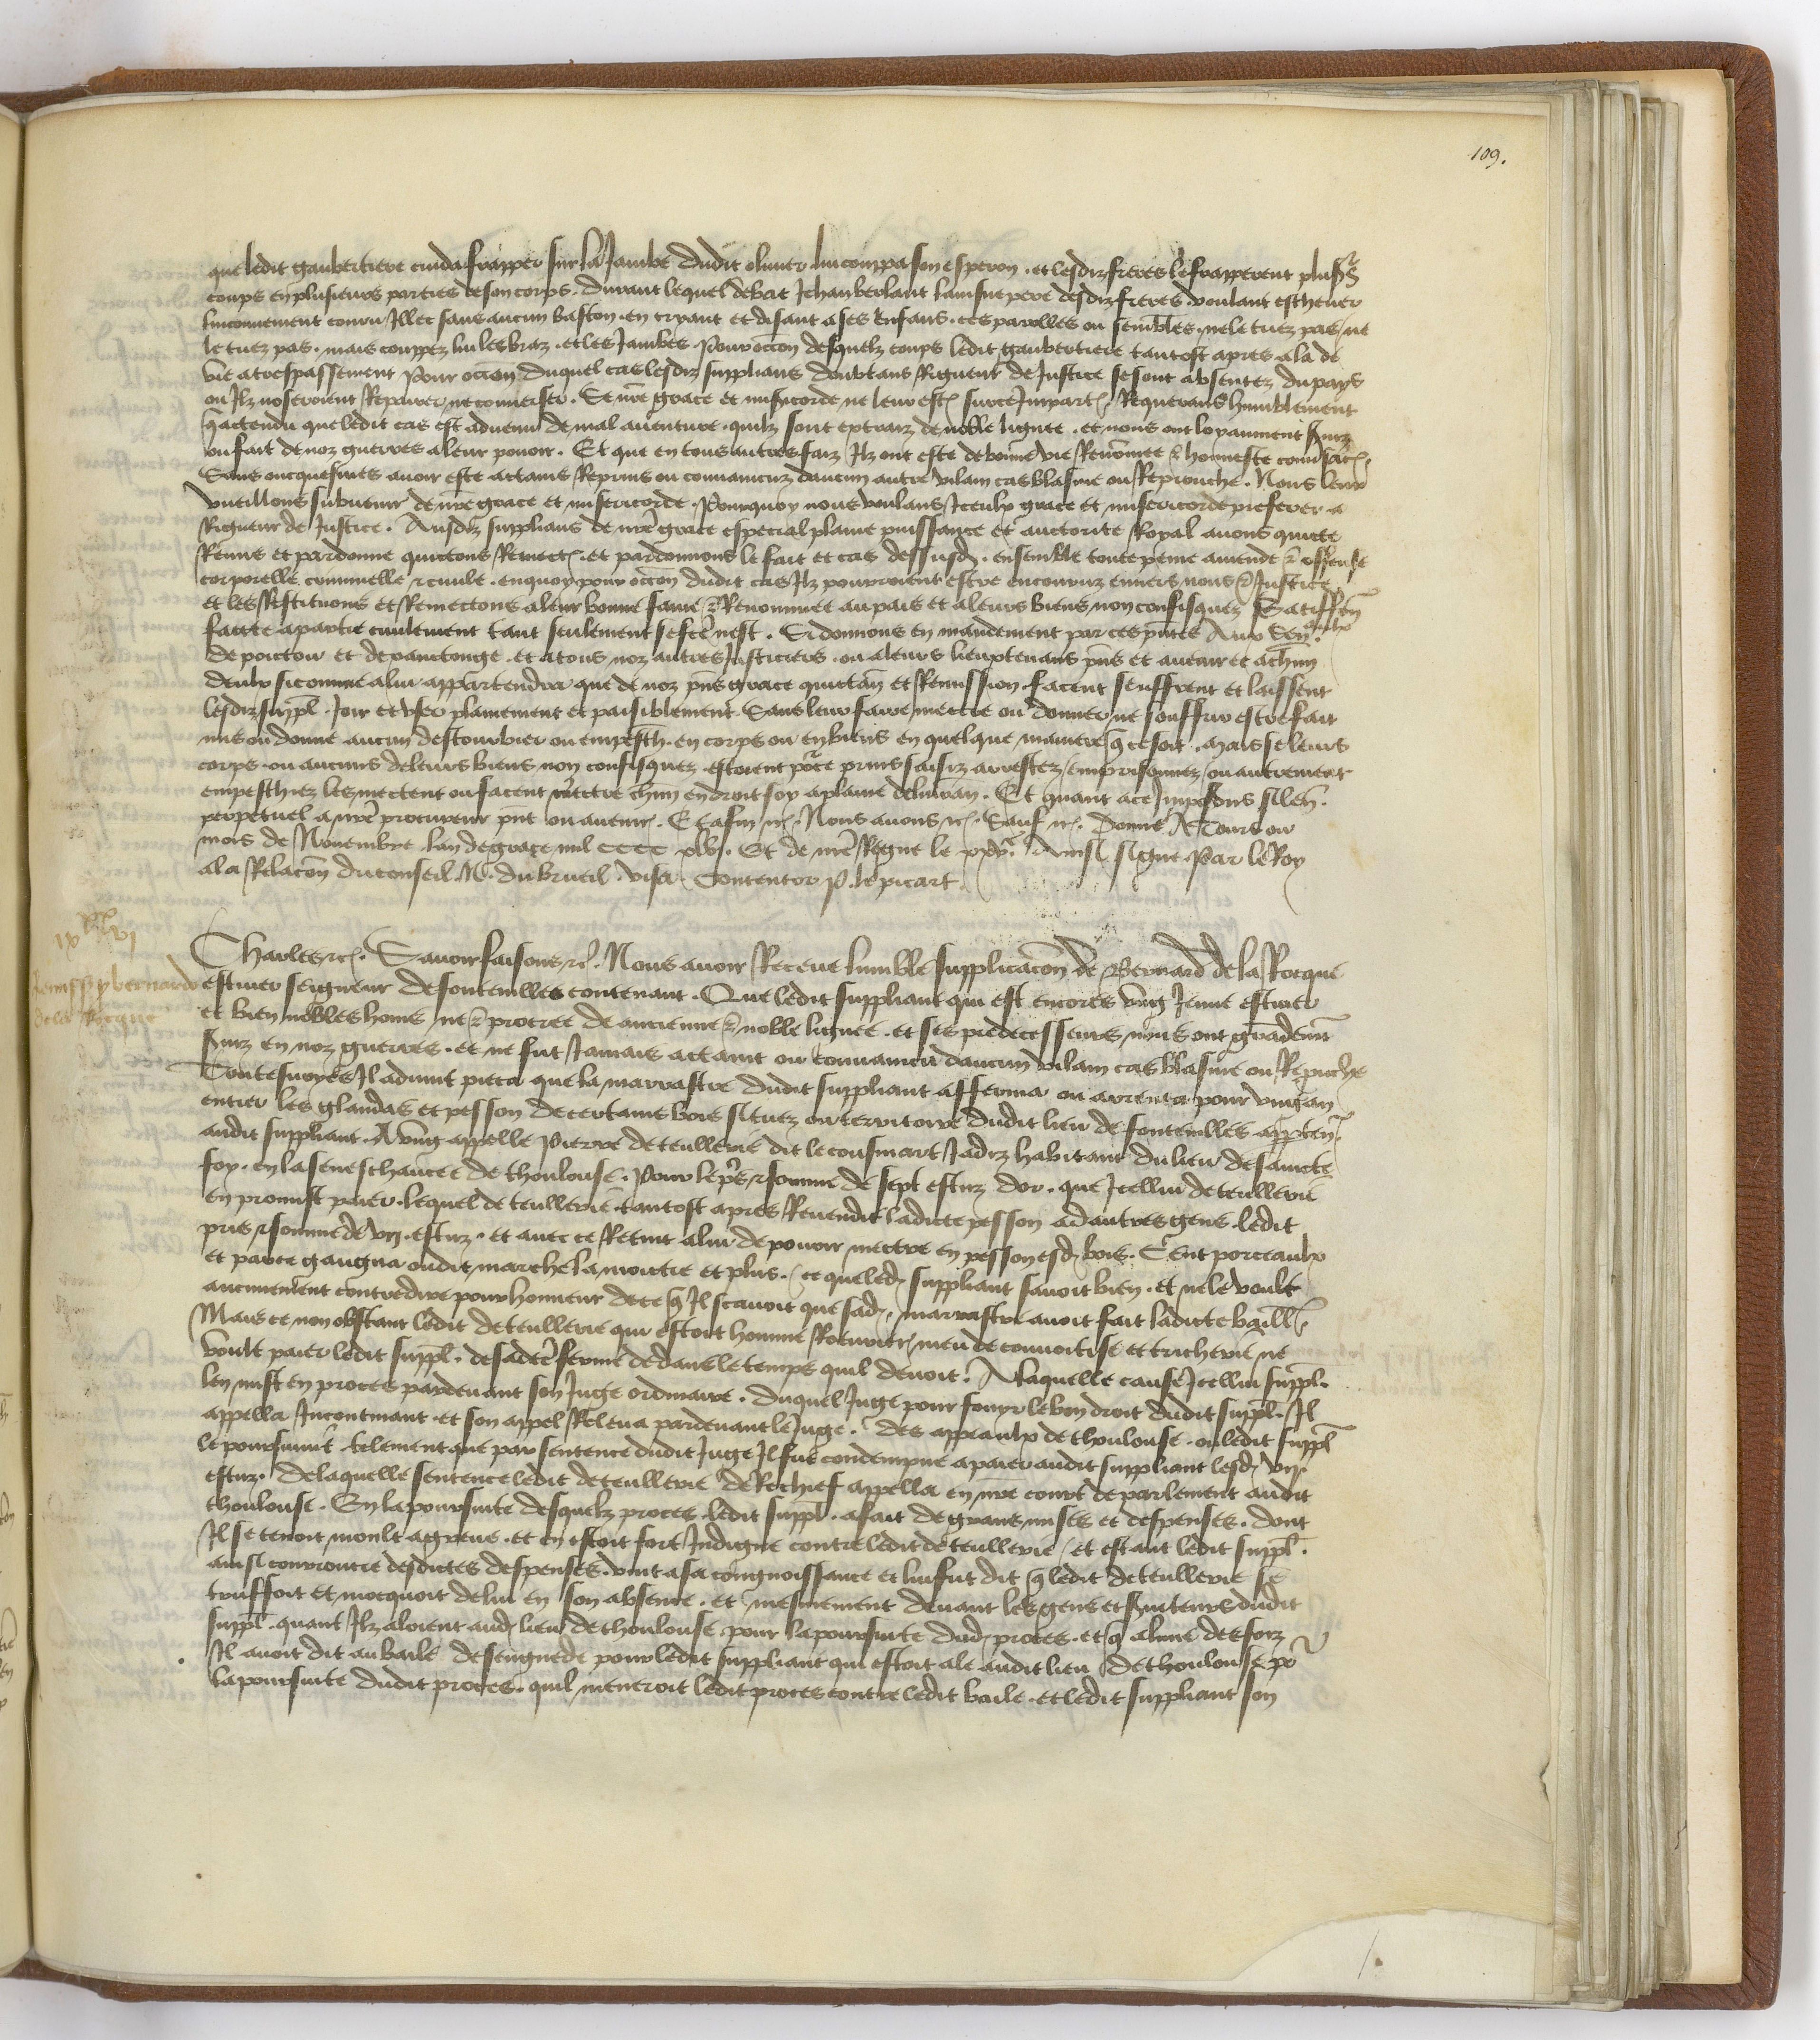 109.
que ledit gaubertiere cuida frapper sur la Jambe dudit olivier lui compa son esperon . et lesdiz freres le frapperent plusrs
coups en plusieurs parties de son corps . durant lequel debat Jehan berlant lainsne pere desdiz freres . voulant escheuer
linconuenient couru Illec sans aucun baston . en cryant et disant a ses enfans . ces parolles ou sembles . ne le tuez pas / ne
le tuez pas . mais couppez lui les braz . et les Jambes . Pour occon desquelz coups ledit gaubertiere tantost apres ala de
vie a trespassement Pour occon duquel cas lesdiz supplians doubtans Rigueur de Justice se sont absentez du pays
ou Ilz noseroient Repairer ne conuerser . Se nre grace et misicorde ne leur est sur ce Impart . Requerans humblement
q actendu que ledit cas est aduenu de mal auenture . quilz sont extraiz de noble lignee . et nous ont loyaument seruiz
ou fait de noz guerres a leur pouoir . Et que en tous autres faiz Ilz ont este de bonne vie Renommee & honneste conuersac .
Sans oncques mes auoir este actains Reprins ou conuaincuz daucun autre vilain cas blasme ou Reprouche . Nous leur
vueillons subuenir de nre grace et misericorde . Pourquoy nous voulans Iceulx grace et misericorde preferer a
Rigueur de Justice . Ausdiz supplians de nre grace especial plaine puissance et auctorite Royal auons quicte
Remis et pardonne quictons Remect . et pardonnons le fait et cas dessusd . ensemble toute peine amende & offense
corporelle criminelle & ciuile . en quoy pour occon dudit cas Ilz pourroient estre encouruz enuers nous & Justice
et les Restituons et Remectons a leur bonne fame & Renommee au pais et a leurs biens non confisquez Satiffon
faicte a partie ciuilement tant seulement se fcte nest . Si donnons en mandement par ces pntes Aux Senaulx
de poictou et de xanctonge . et a tous noz autres Justiciers . ou a leurs lieuxtenans pns et auenir et a chun
deulx si comme a lui appartendra que de noz pns grace quictan et Remission . facent seuffrent et laissent
lesdiz suppl . Joir et vser plainement et paisiblement . Sans leur faire mectre ou donner ne souffrir estre fait
mis ou donne aucun destourbier ou empesch . en corps ou en biens en quelque maniere q ce soit . Mais se leurs
corps . ou aucuns de leurs biens non confisquez . estoient pour ce prins saisiz arrestez / emprisonnez / ou autrement
empeschez les mectent ou facent mectre chun endroit soy a plaine deliuran . Et quant a ce Imposons silen .
perpetuel a nre procureur pnt ou auenir . Et afin &c . Nous auons &c . Sauf &c . Donne A Tours ou
mois de Nouembre . lan de grace mil CCCC xlvj . Et de nre Regne le xxve . Ainsi signe Par le Roy
a la Relacon du conseil . N . du brueil . visa Contentor P . le picart .
ixxx xvi
Remissio bernardo
de la Rocque
Charles &c . Sauoir faisons &c . Nous auoir Receue lumble supplicacon de Bernard de la Rocque
escuier seigneur de fontenilles contenant . Que ledit suppliant qui est encores vng Jeune escuier
et bien nobles homs / ne & procree de ancienne & noble lignee . et ses predecesseurs nous ont grademnt
seruiz en noz guerres . et ne fut Jamais actaint ou conuaincu daucun vilain cas blasme ou Repruche
Toutesuoyes Il aduint pieca que la marrastre dudit suppliant afferma ou arrenta pour vng an
entier les glandas et pesson de certains bois situez ou territoire dudit lieu de fontenilles apptens
audit suppliant . A vng appelle Pierre de teullerie dit le cousinart Jadiz habitant du lieu de saincte
foy . en la seneschaucee de thoulouse . Pour le pris & somme de sept escuz dor . que Icellui de teullerie
en promist paier . lequel de teullerie tantost apres Reuendit ladicte pesson ad autres gens . ledit
pris & somme de vij . escuz . et auec ce Retint a lui de pouoir mectre en pesson esd bois . Cent porceaulx
et par ce gaugna oudit marche la moictie et plus . ce que led suppliant sauoit bien . et ne le voult
aucunement contredire pour honneur de ce q Il scauoit que sad . marrastre auoit fait ladicte baill
Mais ce non obstant ledit de teullerie qui estoit homme Roturier meu de conuoitise et tricherie ne
voult paier ledit suppl . de sadte ferme dedans le temps quil deuoit . A laquelle cause Icellui suppl .
len mist en proces pardeuant son Juge ordinaire . duquel Juge pour fouyr le bon droit dudit suppl . Il
appella Incontinant . et son appel Releua pardeuant le Juge . des appeaulx de thoulouse . ou ledit suppl
le poursuiuit . tellement que par sentence dudit Juge Il fut condempne a paier audit suppliant lesd vij .
escuz . de laquelle sentence ledit de teullerie de Rechief appella en nre court de parlement audit
thoulouse . En la poursuite desquelz proces . ledit suppl . a fait de grans mises et despenses . dont
Il se tenoit moult agreue . et en estoit fort Indigne contre ledit de teullerie / et estant ledit suppl .
ainsi courroucie desdictes despenses . vint a sa congnoissance et lui fut dit q ledit de teullerie se
truffoit et mocquoit de lui en son absence . et mesmement deuant les gens et seruiteurs dudit
suppl . quant Ilz aloient aud lieu de thoulouse pour la poursuite dud proces . et q alune des foiz
Il auoit dit au baile de seuguede pour ledit suppliant qui estoit ale audit lieu de thoulouse pour
la poursuite dudit proces . quil meneroit ledit proces contre ledit baile . et ledit suppliant son